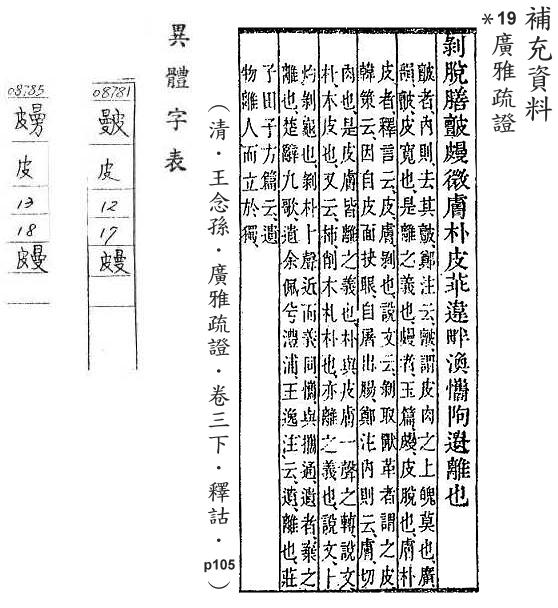 補充資料
*19 廣雅疏證
剝脫膳皽微膚朴皮違畔渙離也
皽者內則去其皽鄭注云皽謂皮肉之上魄莫也廣
韻皽皮寬也是離之義也者玉篇皮脫也膚朴
皮者釋言云皮膚剝也說文云剝取獸革者謂之皮
韓策云因自皮面抉眼自屠出腸鄭注內則云膚切
肉也是皮膚皆離之義也朴與皮膚一聲之轉說文
朴木皮也又云柿削木札朴也亦離之義也說文卜
灼剝龜也剝朴卜聲近而義同與攜通遺者棄之
離也楚辭九歌遺余佩兮澧浦王逸注云遺離也莊
子田子方篇云遺
物離人而立於獨
(清．王念孫．廣雅疏證．卷三下．釋詁．p105)
異體字表
08781
皮
12
17
08785
皮
13
18